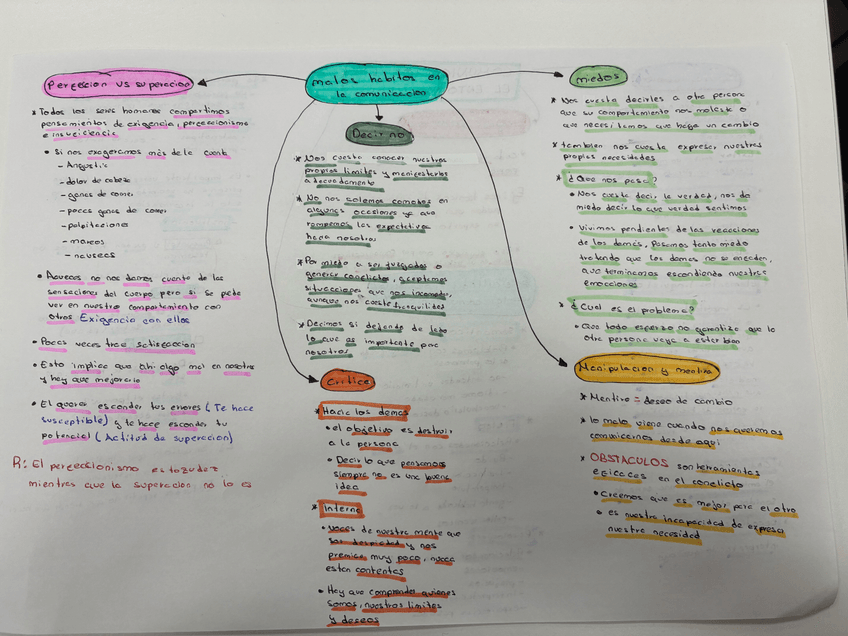 malos habitos en
la comunicacion
Perfeccion vs superacion
* Todos los seres humanos compartimos
pensamientos de exigencia, perfeccionismo
e insuficiencia
• Si nos exageramos más de la cuenta
- Angustia
- dolor de cabeza
- ganas de comer
- pocas ganas de comer
- palpitaciones
- mareos
- nauseas
• Aveces no nos damos cuenta de las
sensaciones del cuerpo pero si se puede
ver en nuestro comportamiento con
otros Exigencia con ellos
• Pocas veces trae satisfaccion
• Esto implica que ahi algo mal en nosotros
y hay que mejorarlo
• El querer esconder tus errores (Te hace
susceptible) y te hace esconder tu
potencial (Actitud de superacion)
R: El perfeccionismo es tozudez
mientras que la superacion no lo es
Decir no
* Nos cuesta conocer nuestros
propios limites y manifestarlos
adecuadamente
* No nos solemos comodos en
algunas occasiones ya que
rompemos las expectativas
hacia nosotros
* Por miedo a ser juzgados o
generar conflictos, aceptamos
situaciones que nos incomodan,
aunque nos cueste tranquilidad
* Decimos si dejando de lado
lo que es importante para
nosotros
Critica
* Hacia los demas
• el objetivo es destruir
a la persona
• Decir lo que pensamos
siempre no es una buena
idea
* Interna
• Voces de nuestra mente que
son despiadad y nos
premian muy poco, nunca
estan contentas
• Hay que comprender quienes
somos, nuestros limites
y deseos
miedos
* Nos cuesta decirles a otra persona
que su comportamiento nos molesta o
que necesitamos que haga un cambio
* tambien nos cuesta expresar nuestras
propias necesidades
* ¿Que nos pasa?
• Nos cuesta decir la verdad, nos da
miedo decir lo que verdad sentimos
• Vivimos pendientes de las reacciones
de los demás, Pasamos tanto miedo
tratando que los demas no se enfaden,
que terminamos escondiendo nuestras
emociones
* ¿Cual es el problema?
• Que todo esfuerzo no garantiza que la
otra persona vaya a estar bien
Manipulacion y mentira
* Mentira = deseo de cambio
* lo malo viene cuando nos queremos
comunicarnos desde aqui
* OBSTACULOS son herramientas
eficaces en el conflicto
• Creemos que es mejor para el otro
• es nuestra incapacidad de expresar
nuestra necesidad